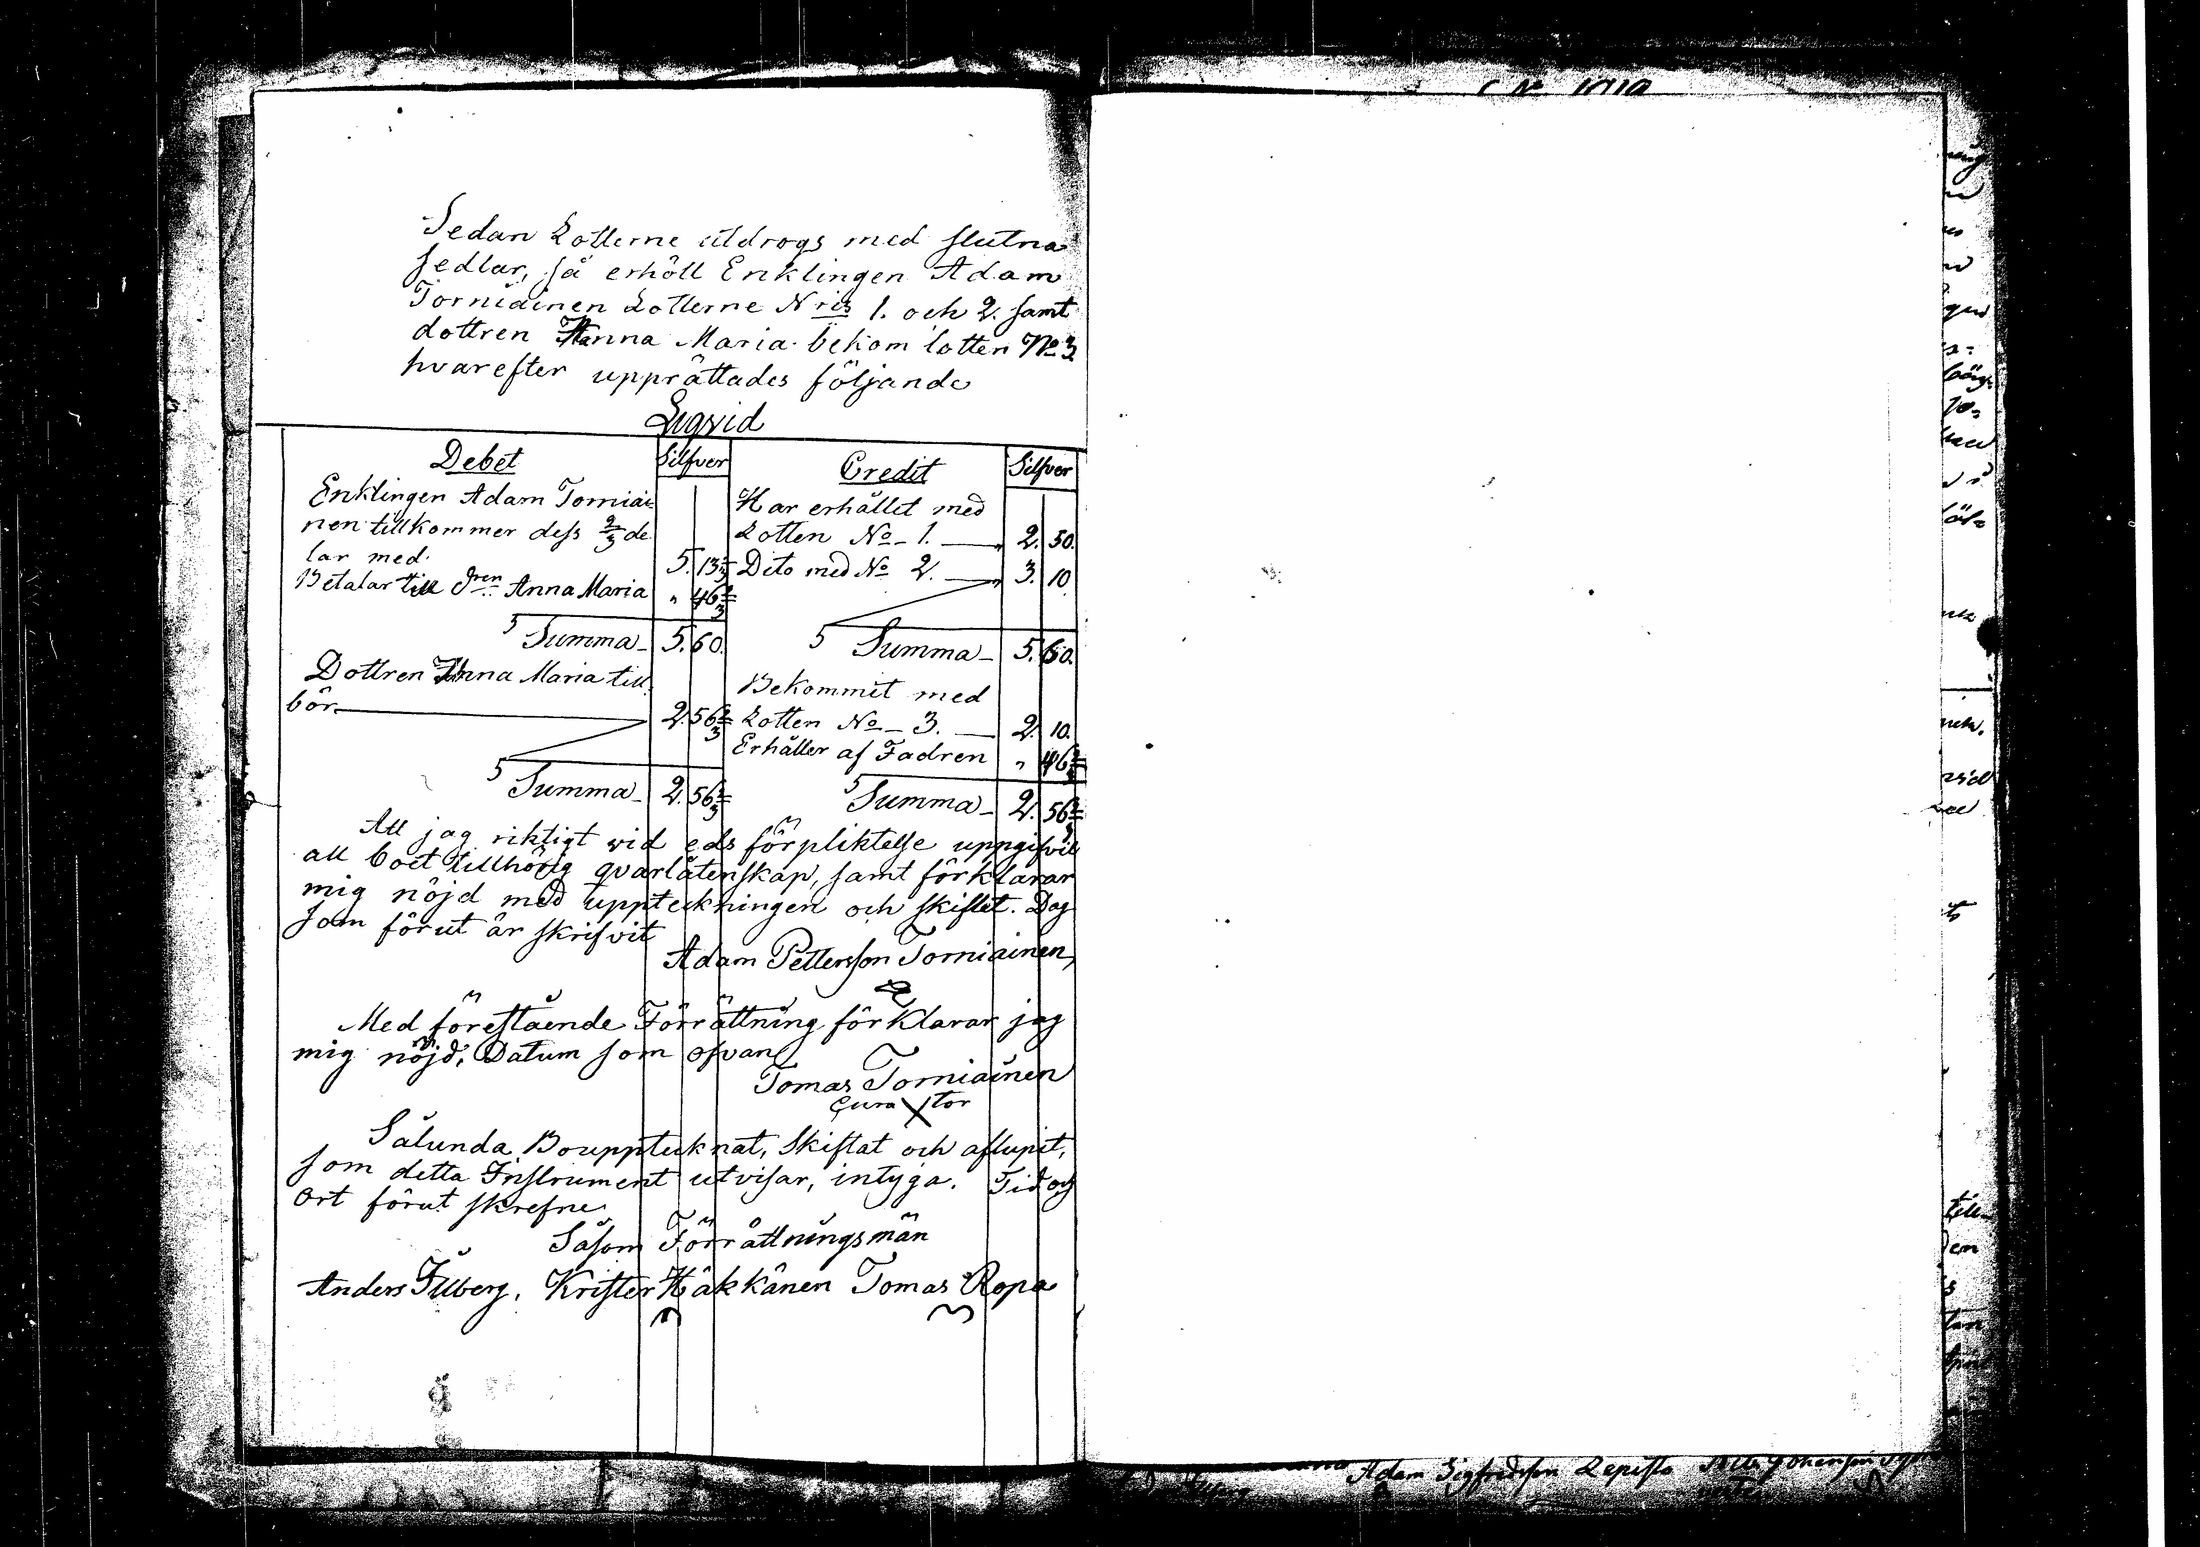 Sedan Lotterne utdrogs med slutna
sedlar, så erhöll Enklingen Adam
Torniainen Lotterne N ris 1. och 2. samt
dottren Anna Maria bekom lotten No 3
hvarefter upprättades följande
Liqvid
Debet Silfver Credit Silfver
Enklingen Adam Torniai-
nen tillkommer dess 2/3 de
lar med 5. 13 1/3
Betalar till dren Anna Maria " 46 2/3
Summa 5. 60.
Har erhållet med
Lotten No 1. 2. 50.
Dito med No 2. 3. 10
Summa 5. 60.
Dottren Anna Maria till-
bör 2. 56 2/3
Summa 2. 56 2/3
Bekommit med
Lotten No 3. 2. 10.
Erhåller af Fadren " 46 2/3
Summa 2. 56 2/3
Att jag riktigt wid eds förpliktelse uppgifvit
all boet tillhörig qvarlåtenskap, samt förklarar
mig nöjd med uppteckningen och skiftet. Dag
som förut är skrifvit
Adam Pettersson Torniainen,
Med förestående Förrättning förklarar jag
mig nöjd; Datum som ofvan
Tomas Torniainen
Cura X tor
Sålunda Bouppteknat, Skiftat och aflupit,
som detta Instrument utvisar, intyga. Tid och
Ort förut skrefne
Såsom Förrättningsmän
Anders Illberg, Krister Häkkänen Tomas Ropa
Adam Sigfredsson Lepistö